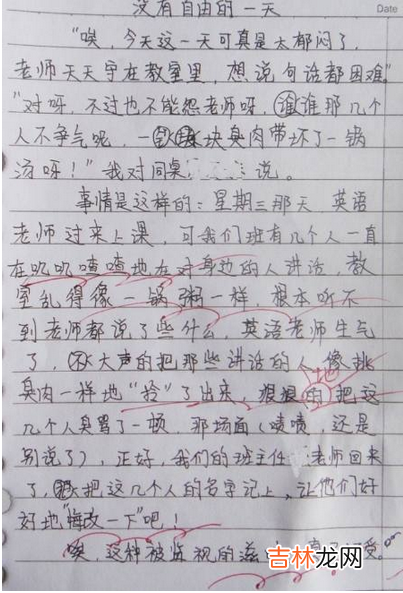 没有自由的一天
Date
“唉，今天这一天可真是太郁闷了，
老师天天守在教室里，想说句话都困难”
“对呀，不过也不能怨老师呀，谁谁那几个
人不争气呢，一块臭肉带坏了一锅
汤呀！”我对同桌说。
事情是这样的：星期三那天，英语
老师过来上课，可我们班有几个人一直
在叽叽喳喳地在对身边的人讲话，教
室乱得像一锅粥一样，根本听不
到老师都说了些什么，英语老师生气
了，大声的把那些讲话的人像挑
地
臭肉一样地“拎”了出来，狠狠的把这
几个人臭骂了一顿，那场面（啧啧，还是
别说了），正好，我们的班主任老师回来
了，把这几个人的名字记上，让他们好
好地“悔改一下”吧！
唉，这种被监视的滋受。
吉林龙网